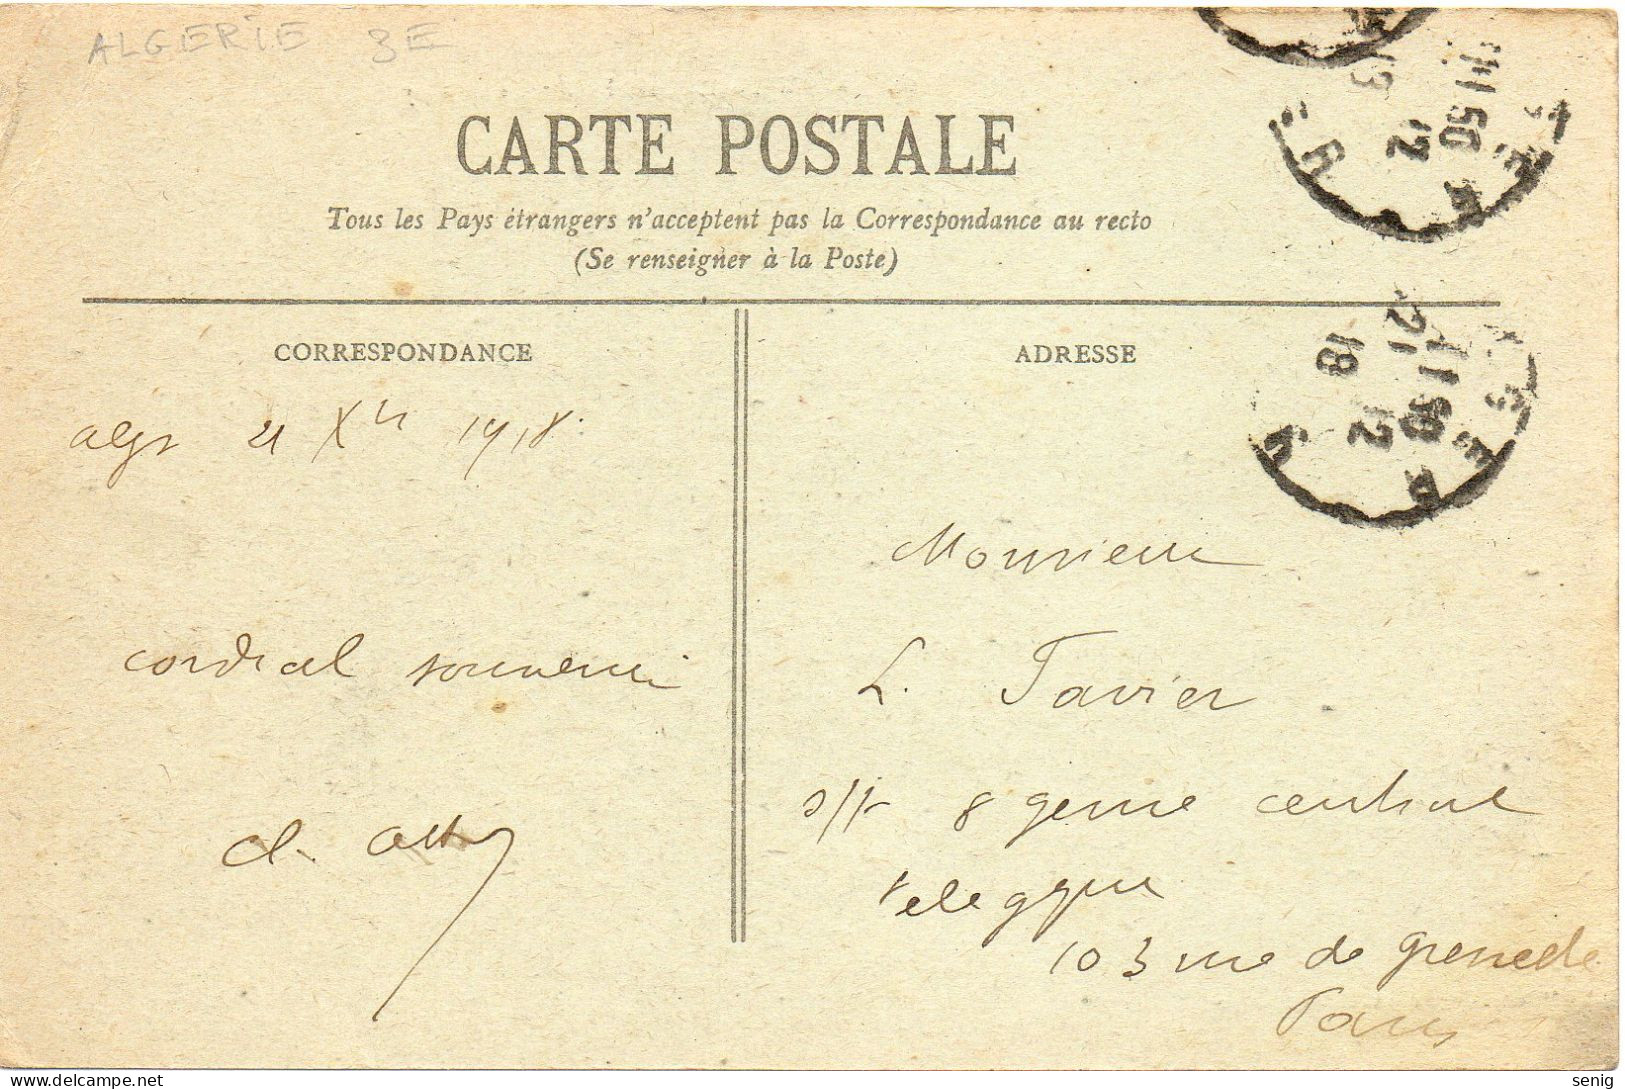 ALGERIE 8E
CARTE POSTALE
Tous les Pays étrangers n'acceptent pas la Correspondance au recto
(Se renseigner à la Poste)
CORRESPONDANCE
ADRESSE
21 Xbre 1918.
cordial souvenir
Monsieur
L. Tavier
8 genie central
103 rue de grenelle
Paris
11 50
12
21 12
18
senig